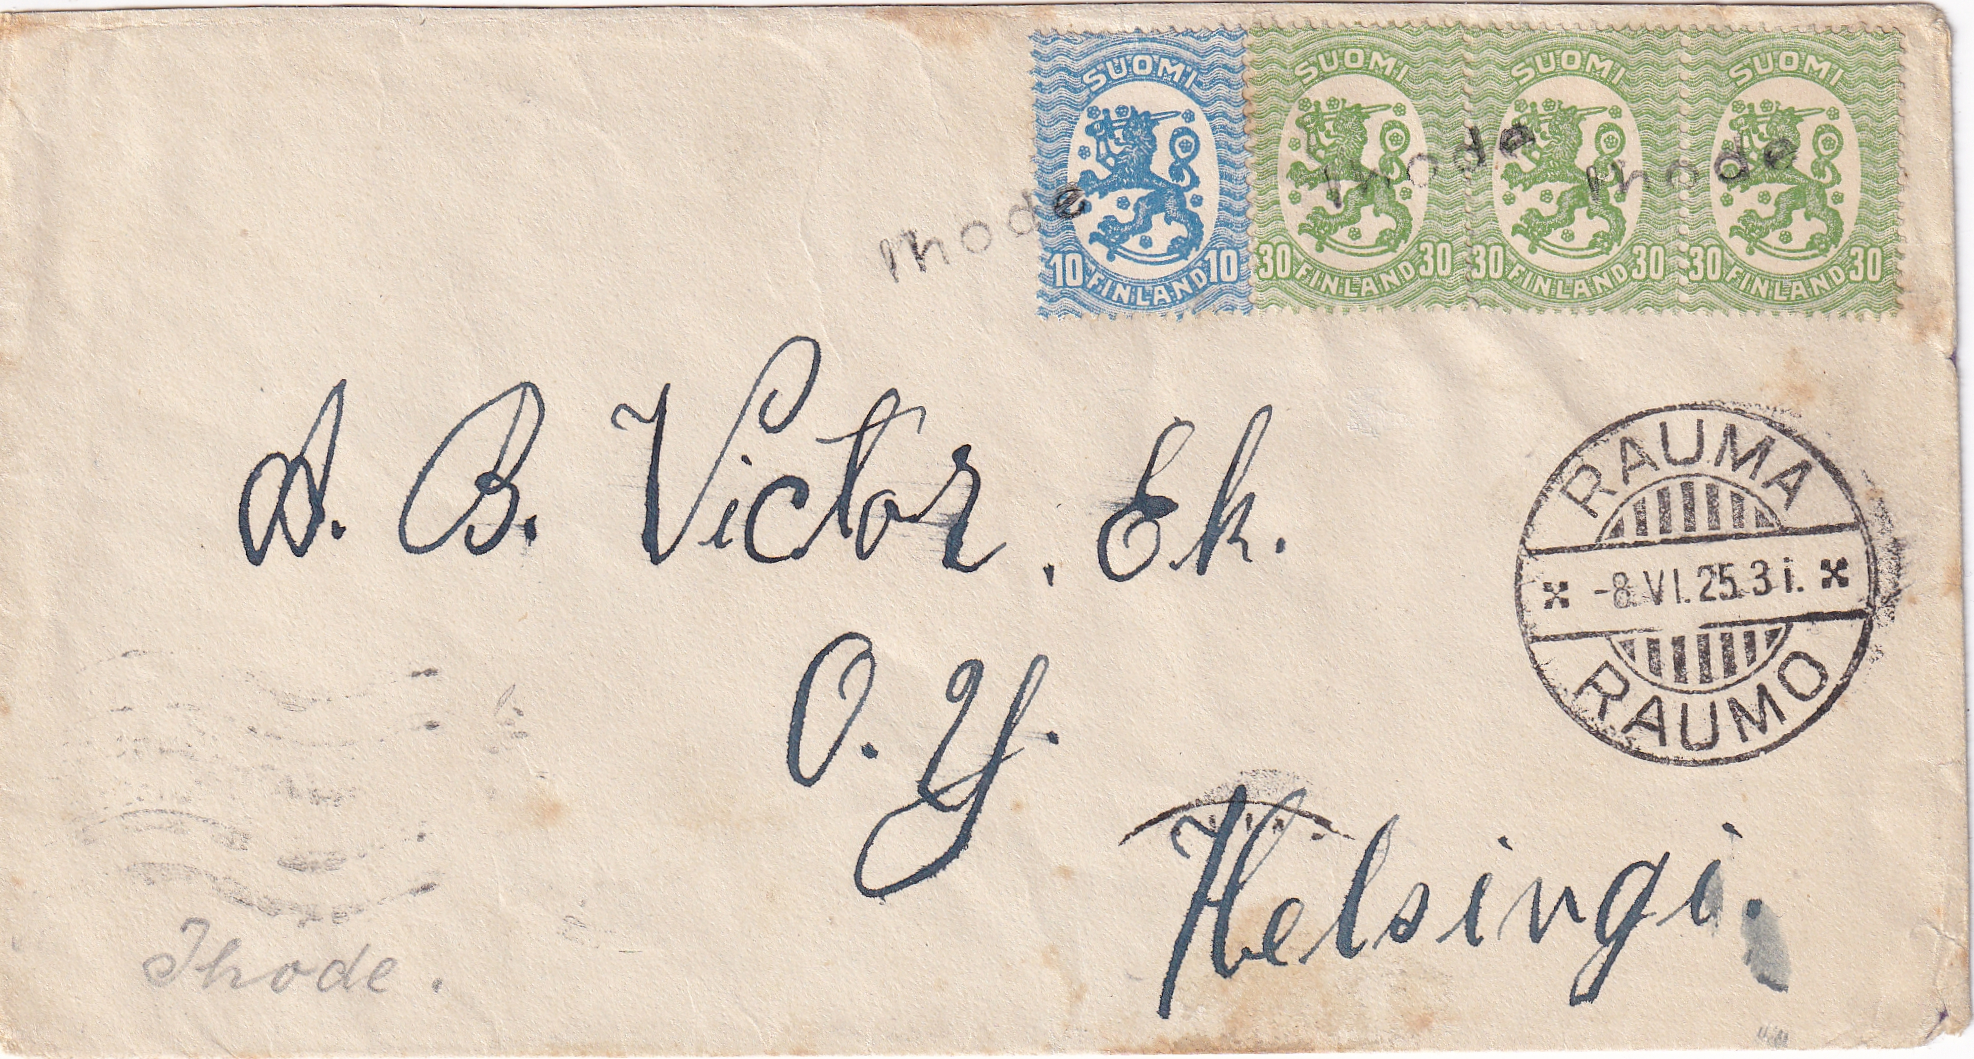 SUOMI SUOMI SUOMI SUOMI
10 FINLAND 10 30 FINLAND 30 30 FINLAND 30 30 FINLAND 30
Thode Thode Thode
A. B. Victor. Ek.
O. Y.
Helsingi.
RAUMA
-8.VI.25.3 i.
RAUMO
Thode.